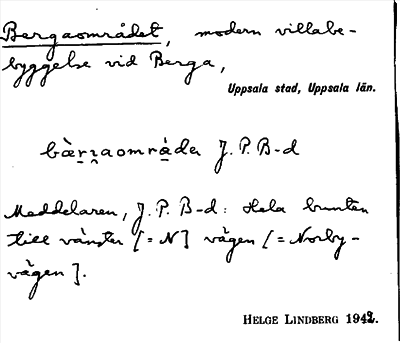 Bergaområdet, modern villabe-
byggelse vid Berga,
Uppsala stad, Uppsala län.
bæ̀r̯ɪ̯aområ̀de J. P. B-d
Meddelaren, J. P. B-d: Hela bunten
till vänster [= N] vägen [= Norby-
vägen].
HELGE LINDBERG 1942.